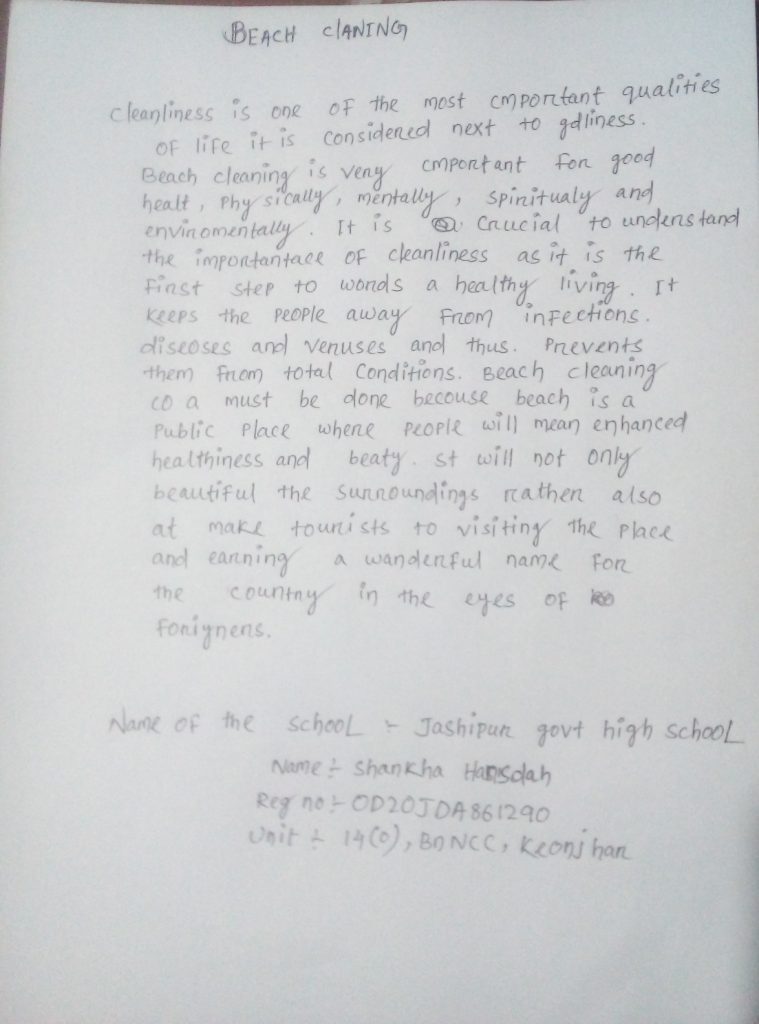 BEACH ClANING
Cleanliness is one of the most cmportant qualities
of life it is considered next to gdliness.
Beach cleaning is very cmportant for good
healt, physically, mentally, spiritualy and
enviromentally. It is crucial to understand
the importantace of cleanliness as it is the
first step to words a healthy living. It
keeps the people away from infections.
diseoses and veruses and thus. Prevents
them from total conditions. Beach cleaning
co a must be done becouse beach is a
Public Place where people will mean enhanced
healthiness and beaty. st will not only
beautiful the surroundings rather also
at make tourists to visiting the place
and earning a wanderful name for
the country in the eyes of
foriyners.
Name of the school :- Jashipur govt high school
Name :- Shankha Hansdah
Reg no :- OD20JDA861290
Unit :- 14(O), Bn NCC, Keonjhar